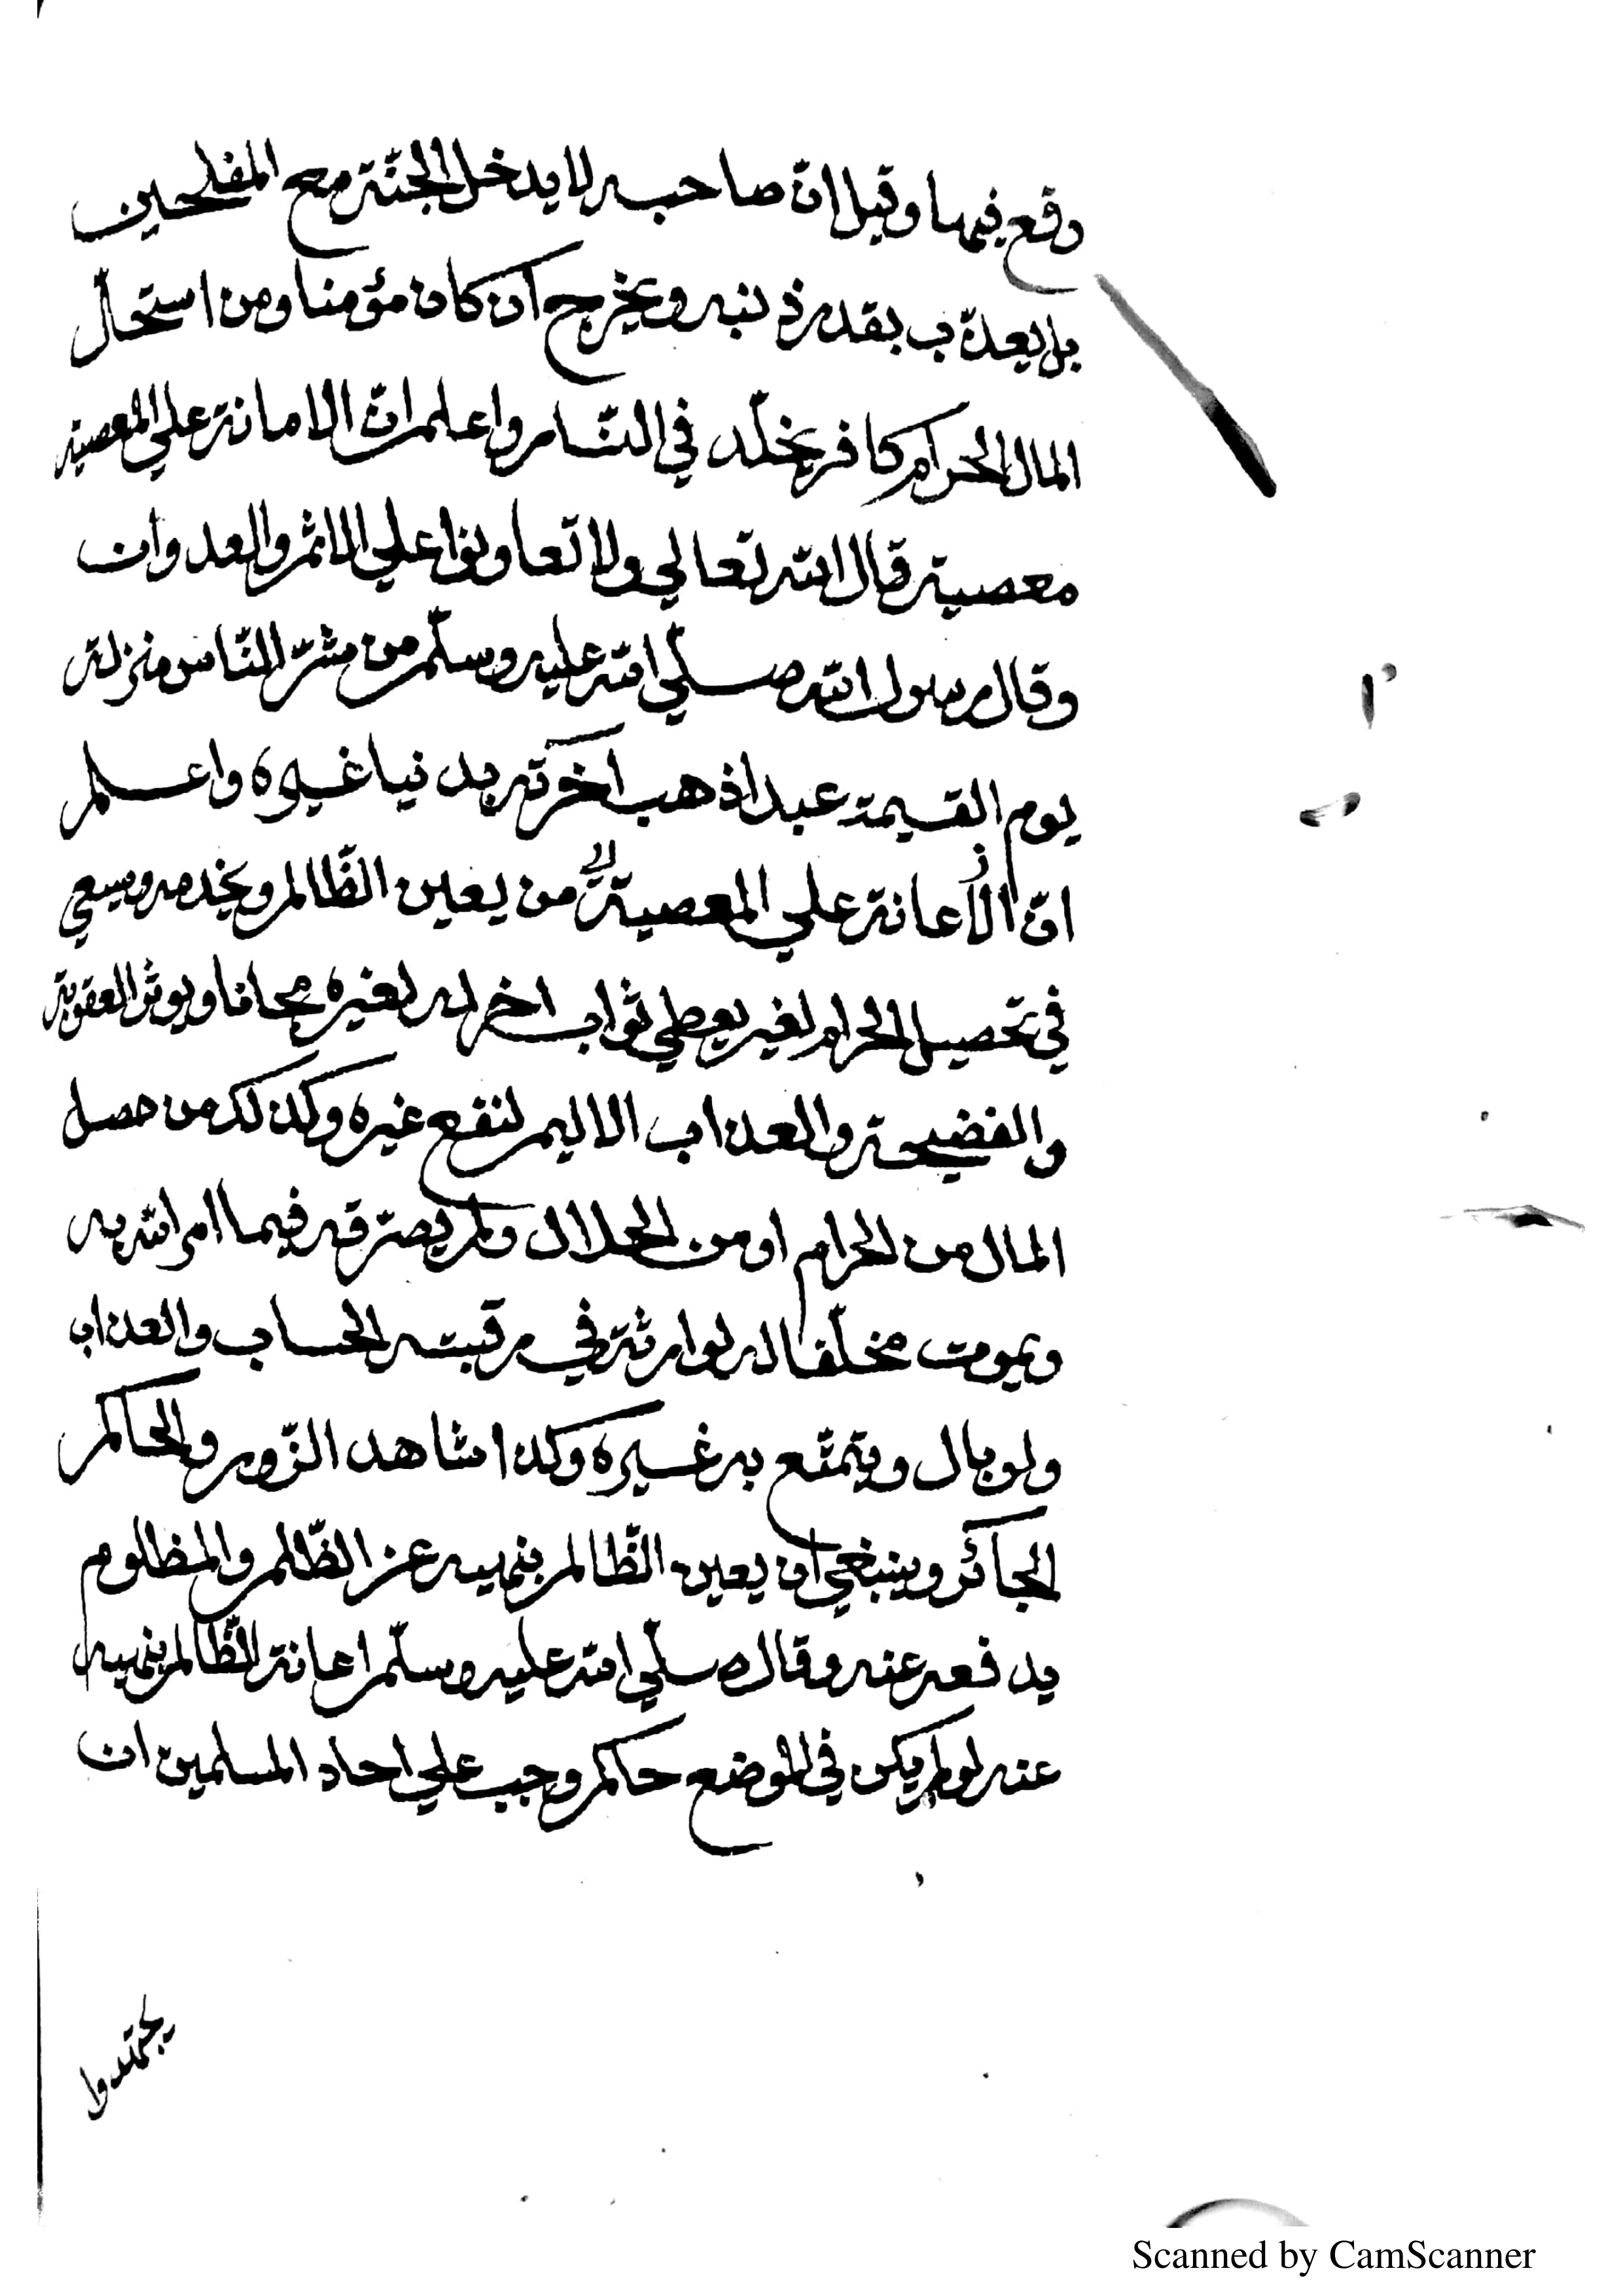 وقع فيها وقيل ان صاحبه لا يدخل الجنّة مع المفلحين
بل يعذّب بقدر ذنبه ويخرج ان كان مؤمنا ومن استحال
المال الحرام كافر يخلّد في النّار واعلم انّ الامانة علي المعصية
معصية قال الله تعالي ولا تعاونوا علي الاثم والعدوان
وقال رسول الله صلّي الله عليه وسلّم من شرّ النّاس منزلة
يوم القيمة عبد اذهب اخرته بدنيا غيره واعلم
انّ الاعانة علي المعصية من يعين الظّالم ويخدمه ويسعي
في تحصيل الحرام لغير يعطي ثواب اخرله لغيره مجانا ويوثر العقوبة
والفضيحة والعذاب الاليم لنفع غيره وكذلك من حصل
المال من الحرام او من الحلال ولم يصرّفه فيما امر الله به
ويموت مخلّفا له لوارثة في رقبته الحساب والعذاب
ولوبال ويتمتّع به غيره وكذا شاهد الزّور والحاكم
الجائر وينبغي ان يعين الظّالم بنهييه عن الظّلم والمظلوم
يدفعه عنه وقال صلّي الله عليه وسلّم اعانة الظّالم بنهييه
عنه لو لم يكن في الموضع حاكم وجب علي احاد المسلمين ان
يجتهدوا
Scanned by CamScanner